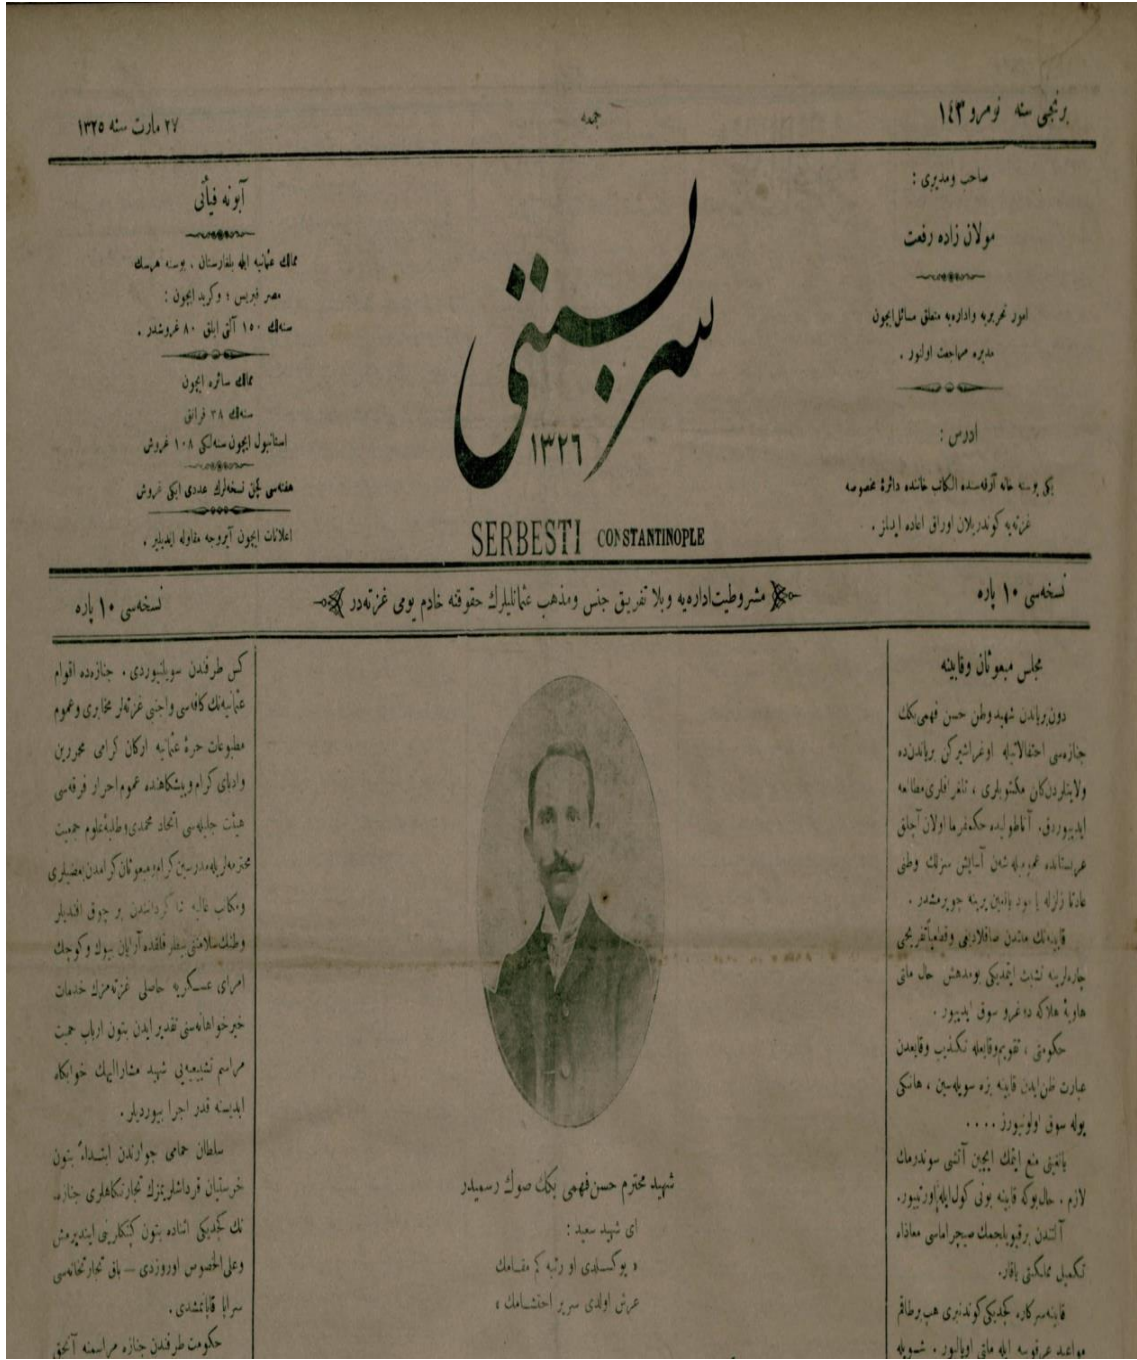 برنجی سنه نومرو ١٤٣
جمعه
٢٧ مارت سنه ١٣٢٥
صاحب ومدیری :
مولان زاده رفعت
امور تحریریه واداریه متعلق مسائل ایچون
مدیره مراجعت اولنور .
ادرس :
یکی پوسته خانه آرقه‌سنده الکاتب خاننده دائرۀ مخصوصه
غزته‌یه کوندریلان اوراق اعاده ایدلمز .
سربستی
١٣٢٦
SERBESTI CONSTANTINOPLE
آبونه فیأتی
ممالك عثمانیه ایله بلغارستان ، بوسنه هرسك
مصر قبریس ، وکرید ایچون :
سنه‌لك ١٥٠ آلتی آیلق ٨٠ غروشدر .
ممالك سائره ایچون
سنه‌لك ٣٨ فرانق
استانبول ایچون سنه‌لکی ١٠٨ غروش
هفته‌سی کچن نسخه‌لرك عددی ایکی غروش
اعلانات ایچون آیروجه مقاوله ایدیلیر .
نسخه‌سی ١٠ پاره
مشروطیت اداره‌یه وبلا تفریق جنس ومذهب عثمانلیلرك حقوقنه خادم یومی غزته‌در
نسخه‌سی ١٠ پاره
مجلس مبعوثان وقابینه
دون بریاندن شهید وطن حسن فهمی بکك
جنازه‌سی احتفالاتیله اوغراشیرکن بریاندن‌ده
ولایتلردن کلن مکتوبلری ، تلغرافلری مطالعه
ایدیوردق. آناطولیده حکمفرما اولان آجلق
عربستانده آسایش سزلك وطنی
عادتا زلزله یانغین یرینه چویرمشدر .
قابینه‌نك ملتدن صاقلادیغی وقطعیاً تفریجی
چاره‌لرینه تشبث ایتمدیکی بومدهش حال ملتی
هاویۀ هلاکه دوغرو سوق ایدییور .
حکومتی ، تقویم وقایعله تکذیب وقایعدن
عبارت ظن ایدن قابینه بزه سویله‌سین ، هانکی
یوله سوق اولونیورز ....
یانغینی منع ایتمك ایچین آتشی سوندرمك
لازم . حال بوکه قابینه بونی کول ایله اورتیور.
آلتدن برقیویلجمك صیچراماسی معاذالله
تکمیل مملکتی یاقار.
قابینه سرکاره کچدیکی کوندنبری هپ برطاقم
مواعید عرقوبیه ایله ملتی اویالیور . شویله
شهید محترم حسن فهمی بکك صوك رسمیدر
ای شهید سعید :
« یوکسلدی او رتبه کم مقامك
عرش اولدی سریر احتشامك »
کس طرفندن سویلنیوردی . جنازه‌ده اقوام
عثمانیه‌نك کافه‌سی واجنبی غزته‌لر مخابری وعموم
مطبوعات حرۀ عثمانیه ارکان کرامی محررین
وادبای کرام وپیشکاهنده عموم احرار فرقه‌سی
هیئت جلیله‌سی اتحاد محمدی وطلبۀ علوم جمعیت
محترمه‌لریله مدرسین کرام ومبعوثان کرامدن بعضیلری
ومکاتب عالیه بر چوق افندیلر
وطنك سلامتنی بیطرفلقده آرایان بیوك وکوچك
امرای عسکریه حاصلی غزته‌مزك خدمات
خیرخواهانه‌سنی تقدیر ایدن بتون ارباب حمیت
مراسم تشییعیه‌یی شهید مشارالیهك خوابکاه
ابدیسنه قدر اجرا بیوردیلر.
سلطان حمامی جوارندن ابتداءً بتون
خرستیان قرداشلریمزك تجارتکاهلری جنازه-
نك کچدیکی اثناده بتون کپنکلرینی ایندیرمش
وعلی الخصوص اوروزدی – باق تجارتخانه‌سی
سراپا قاپانمشدی.
حکومت طرفندن جنازه مراسمنه آنجق